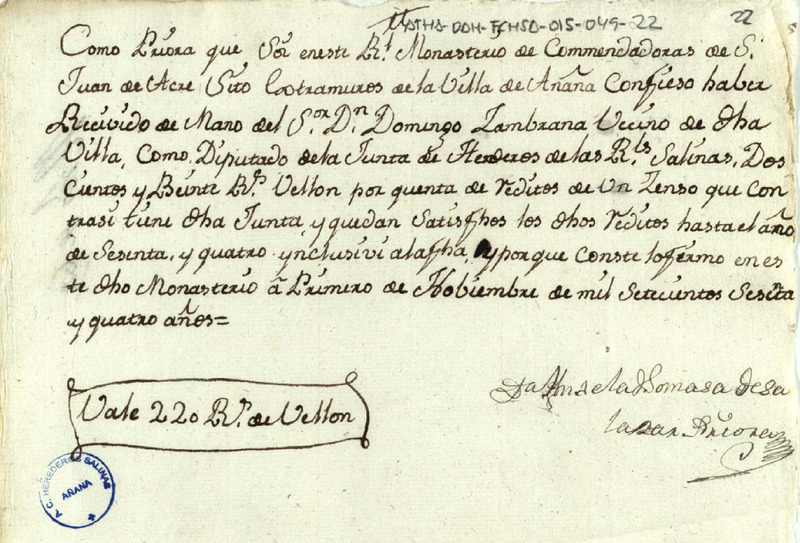 ATHA-DAH-FCHSD-015-049-22
22
Como Priora que Soi eneste Rl. Monasterio de Commendadoras de Sn.
Juan de Acre Sito Extramuros de la Villa de Añana Confieso haber
Recivido de Mano del Sor. Dn. Domingo Zambrana Vecino de dha
Villa, Como Diputado de la Junta de Herderos de las Rls Salinas, Dos
Cientos y Beinte Rs. Vellon por quenta de rditos de Un Zenso que Con
trasi tiene dha Junta, y quedan Satisfhos los dhos rditos hasta el año
de Sesenta, y quatro ynclusivi a la fha, y porque Conste lo firmo en es
te dho Monasterio á Primero de Nobiembre de mil Setecientos Sesēta
y quatro años=
Vale 220 Rs. de Vellon
Da Thomasa de Sa
lazar Priora
A.C. HEREDEROS SALINAS
AÑANA